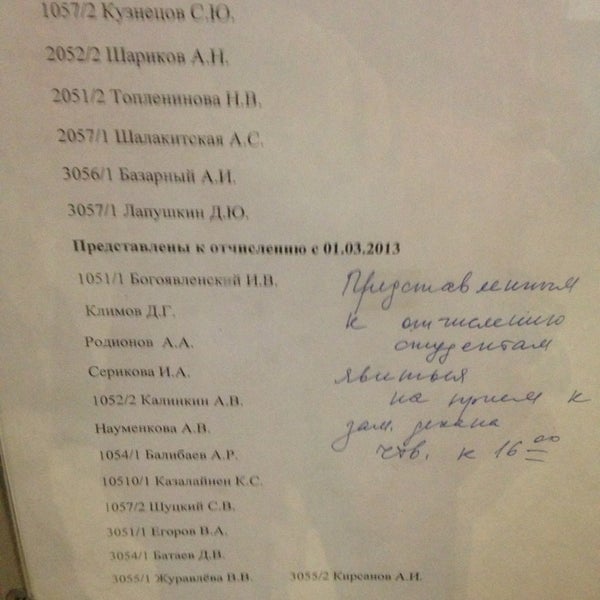 1057/2 Кузнецов С.Ю.
2052/2 Шариков А.Н.
2051/2 Топленинова Н.В.
2057/1 Шалакитская А.С.
3056/1 Базарный А.И.
3057/1 Лапушкин Д.Ю.
Представлены к отчислению с 01.03.2013
1051/1 Богоявленский И.В.
Климов Д.Г.
Родионов А.А.
Серикова И.А.
1052/2 Калинкин А.В.
Науменкова А.В.
1054/1 Балибаев А.Р.
10510/1 Казалайнен К.С.
1057/2 Шуцкий С.В.
3051/1 Егоров В.А.
3054/1 Батаев Д.В.
3055/1 Журавлёва В.В. 3055/2 Кирсанов А.И.
Представленным
к отчислению
студентам
явиться
на прием к
зам. декана
чтв. к 16 00